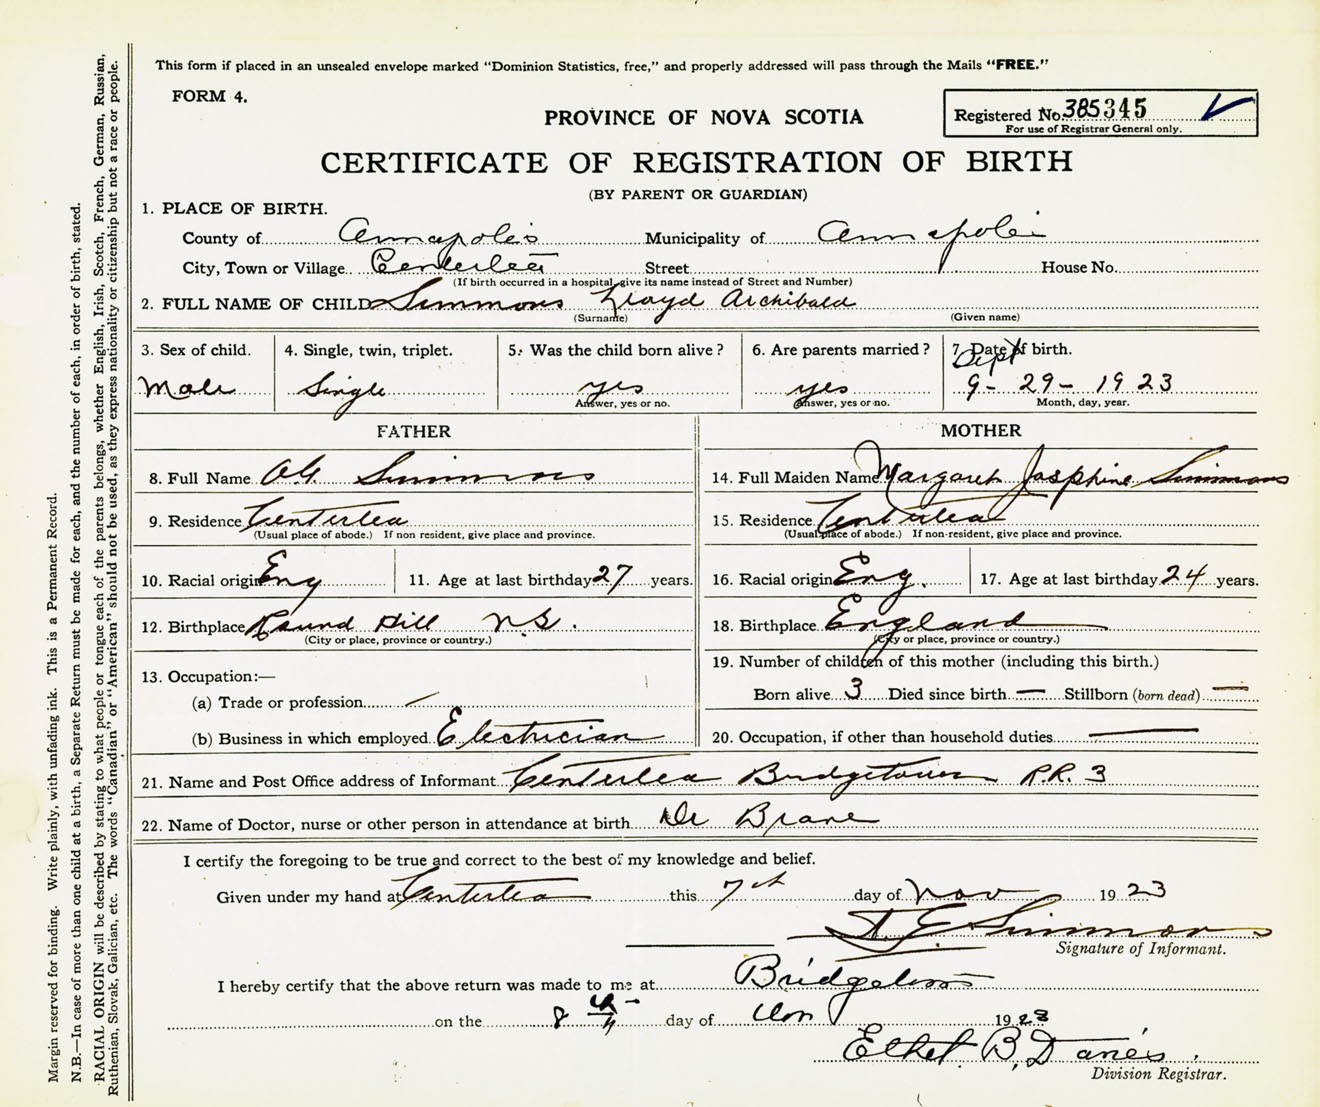 This form if placed in an unsealed envelope marked "Dominion Statistics, free," and properly addressed will pass through the Mails "FREE."
FORM 4.
PROVINCE OF NOVA SCOTIA
Registered No. 385345
For use of Registrar General only.
CERTIFICATE OF REGISTRATION OF BIRTH
(BY PARENT OR GUARDIAN)
1. PLACE OF BIRTH.
County of Annapolis Municipality of Annapolis
City, Town or Village Centerlea Street House No.
(If birth occurred in a hospital, give its name instead of Street and Number)
2. FULL NAME OF CHILD Simmons Lloyd Archibald
(Surname) (Given name)
3. Sex of child. 4. Single, twin, triplet. 5. Was the child born alive? 6. Are parents married? 7. Date of birth.
Sept
Male Single yes yes 9 - 29 - 1923
Answer, yes or no. Answer, yes or no. Month, day, year.
FATHER MOTHER
8. Full Name Simmons 14. Full Maiden Name Margaret Josphine Simmons
9. Residence Centerlea 15. Residence Centerlea
(Usual place of abode.) If non resident, give place and province. (Usual place of abode.) If non-resident, give place and province.
10. Racial origin Eng 11. Age at last birthday 27 years. 16. Racial origin Eng. 17. Age at last birthday 24 years.
12. Birthplace Round Hill N.S. 18. Birthplace England
(City or place, province or country.) (City or place, province or country.)
13. Occupation:— 19. Number of children of this mother (including this birth.)
(a) Trade or profession Born alive 3 Died since birth — Stillborn (born dead) —
(b) Business in which employed Electrician 20. Occupation, if other than household duties —
21. Name and Post Office address of Informant Centerlea Bridgetown R.R. 3
22. Name of Doctor, nurse or other person in attendance at birth Dr
I certify the foregoing to be true and correct to the best of my knowledge and belief.
Given under my hand at Centerlea this 7th day of Nov 1923
Simmons
Signature of Informant.
I hereby certify that the above return was made to me at Bridgetown
on the 8th day of Nov 1923
Ethel B.
Division Registrar.
Margin reserved for binding. Write plainly, with unfading ink. This is a Permanent Record.
N.B.—In case of more than one child at a birth, a Separate Return must be made for each, and the number of each, in order of birth, stated.
RACIAL ORIGIN will be described by stating to what people or tongue each of the parents belongs, whether English, Irish, Scotch, French, German, Russian,
Ruthenian, Slovak, Galician, etc. The words "Canadian" or "American" should not be used, as they express nationality or citizenship but not a race or people.